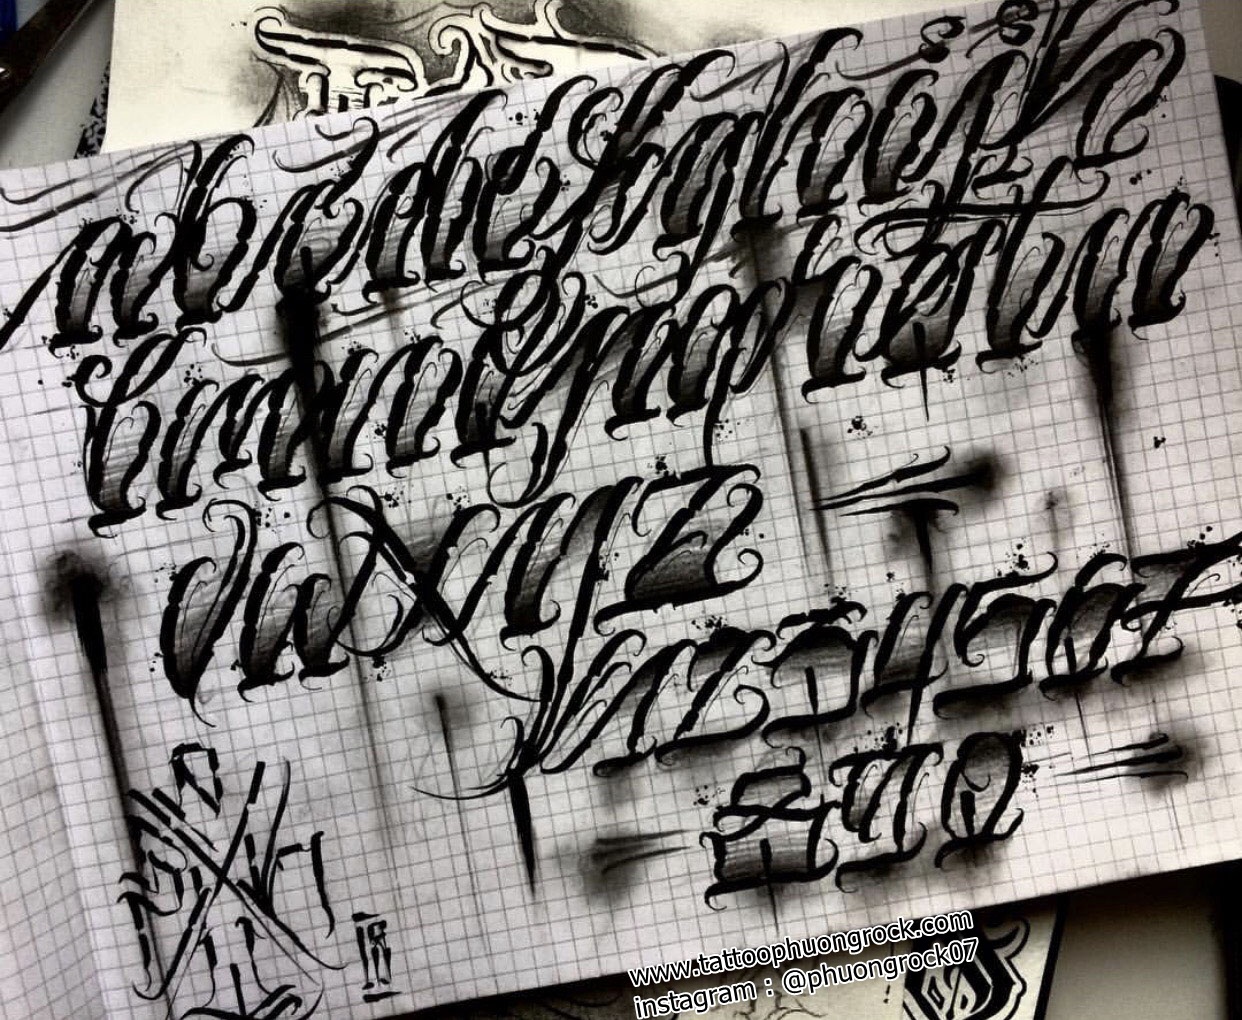 abcdefghijk
lmnopqrstu
vwxyz
1234567
890
www.tattoophuongrock.com
instagram : @phuongrock07